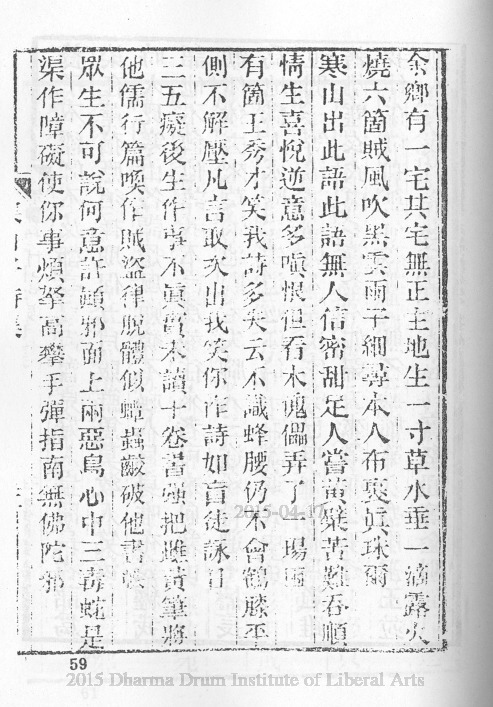 余鄉有一宅其宅無正主地生一寸草水垂一滴露火
燒六箇賊風吹黑雲雨子細尋本人布裹真珠爾
寒山出此語此語無人信蜜甜足人嘗黃蘗苦難吞順
情生喜悅逆意多嗔恨但看木傀儡弄了一場困
有箇王秀才笑我詩多失云不識蜂腰仍不會鶴膝平
側不解壓凡言取次出我笑你作詩如盲徒詠日
三五癡後生作事不真實未讀十卷書強把雌黃筆將
他儒行篇喚作賊盜律脫體似蟫蟲齩破他書帙
眾生不可說何意許顛邪面上兩惡鳥心中三毒蛇是
渠作障礙使你事煩拏高舉手彈指南無佛陀耶
山子詩集
59
2015-04-17
2015 Dharma Drum Institute of Liberal Arts